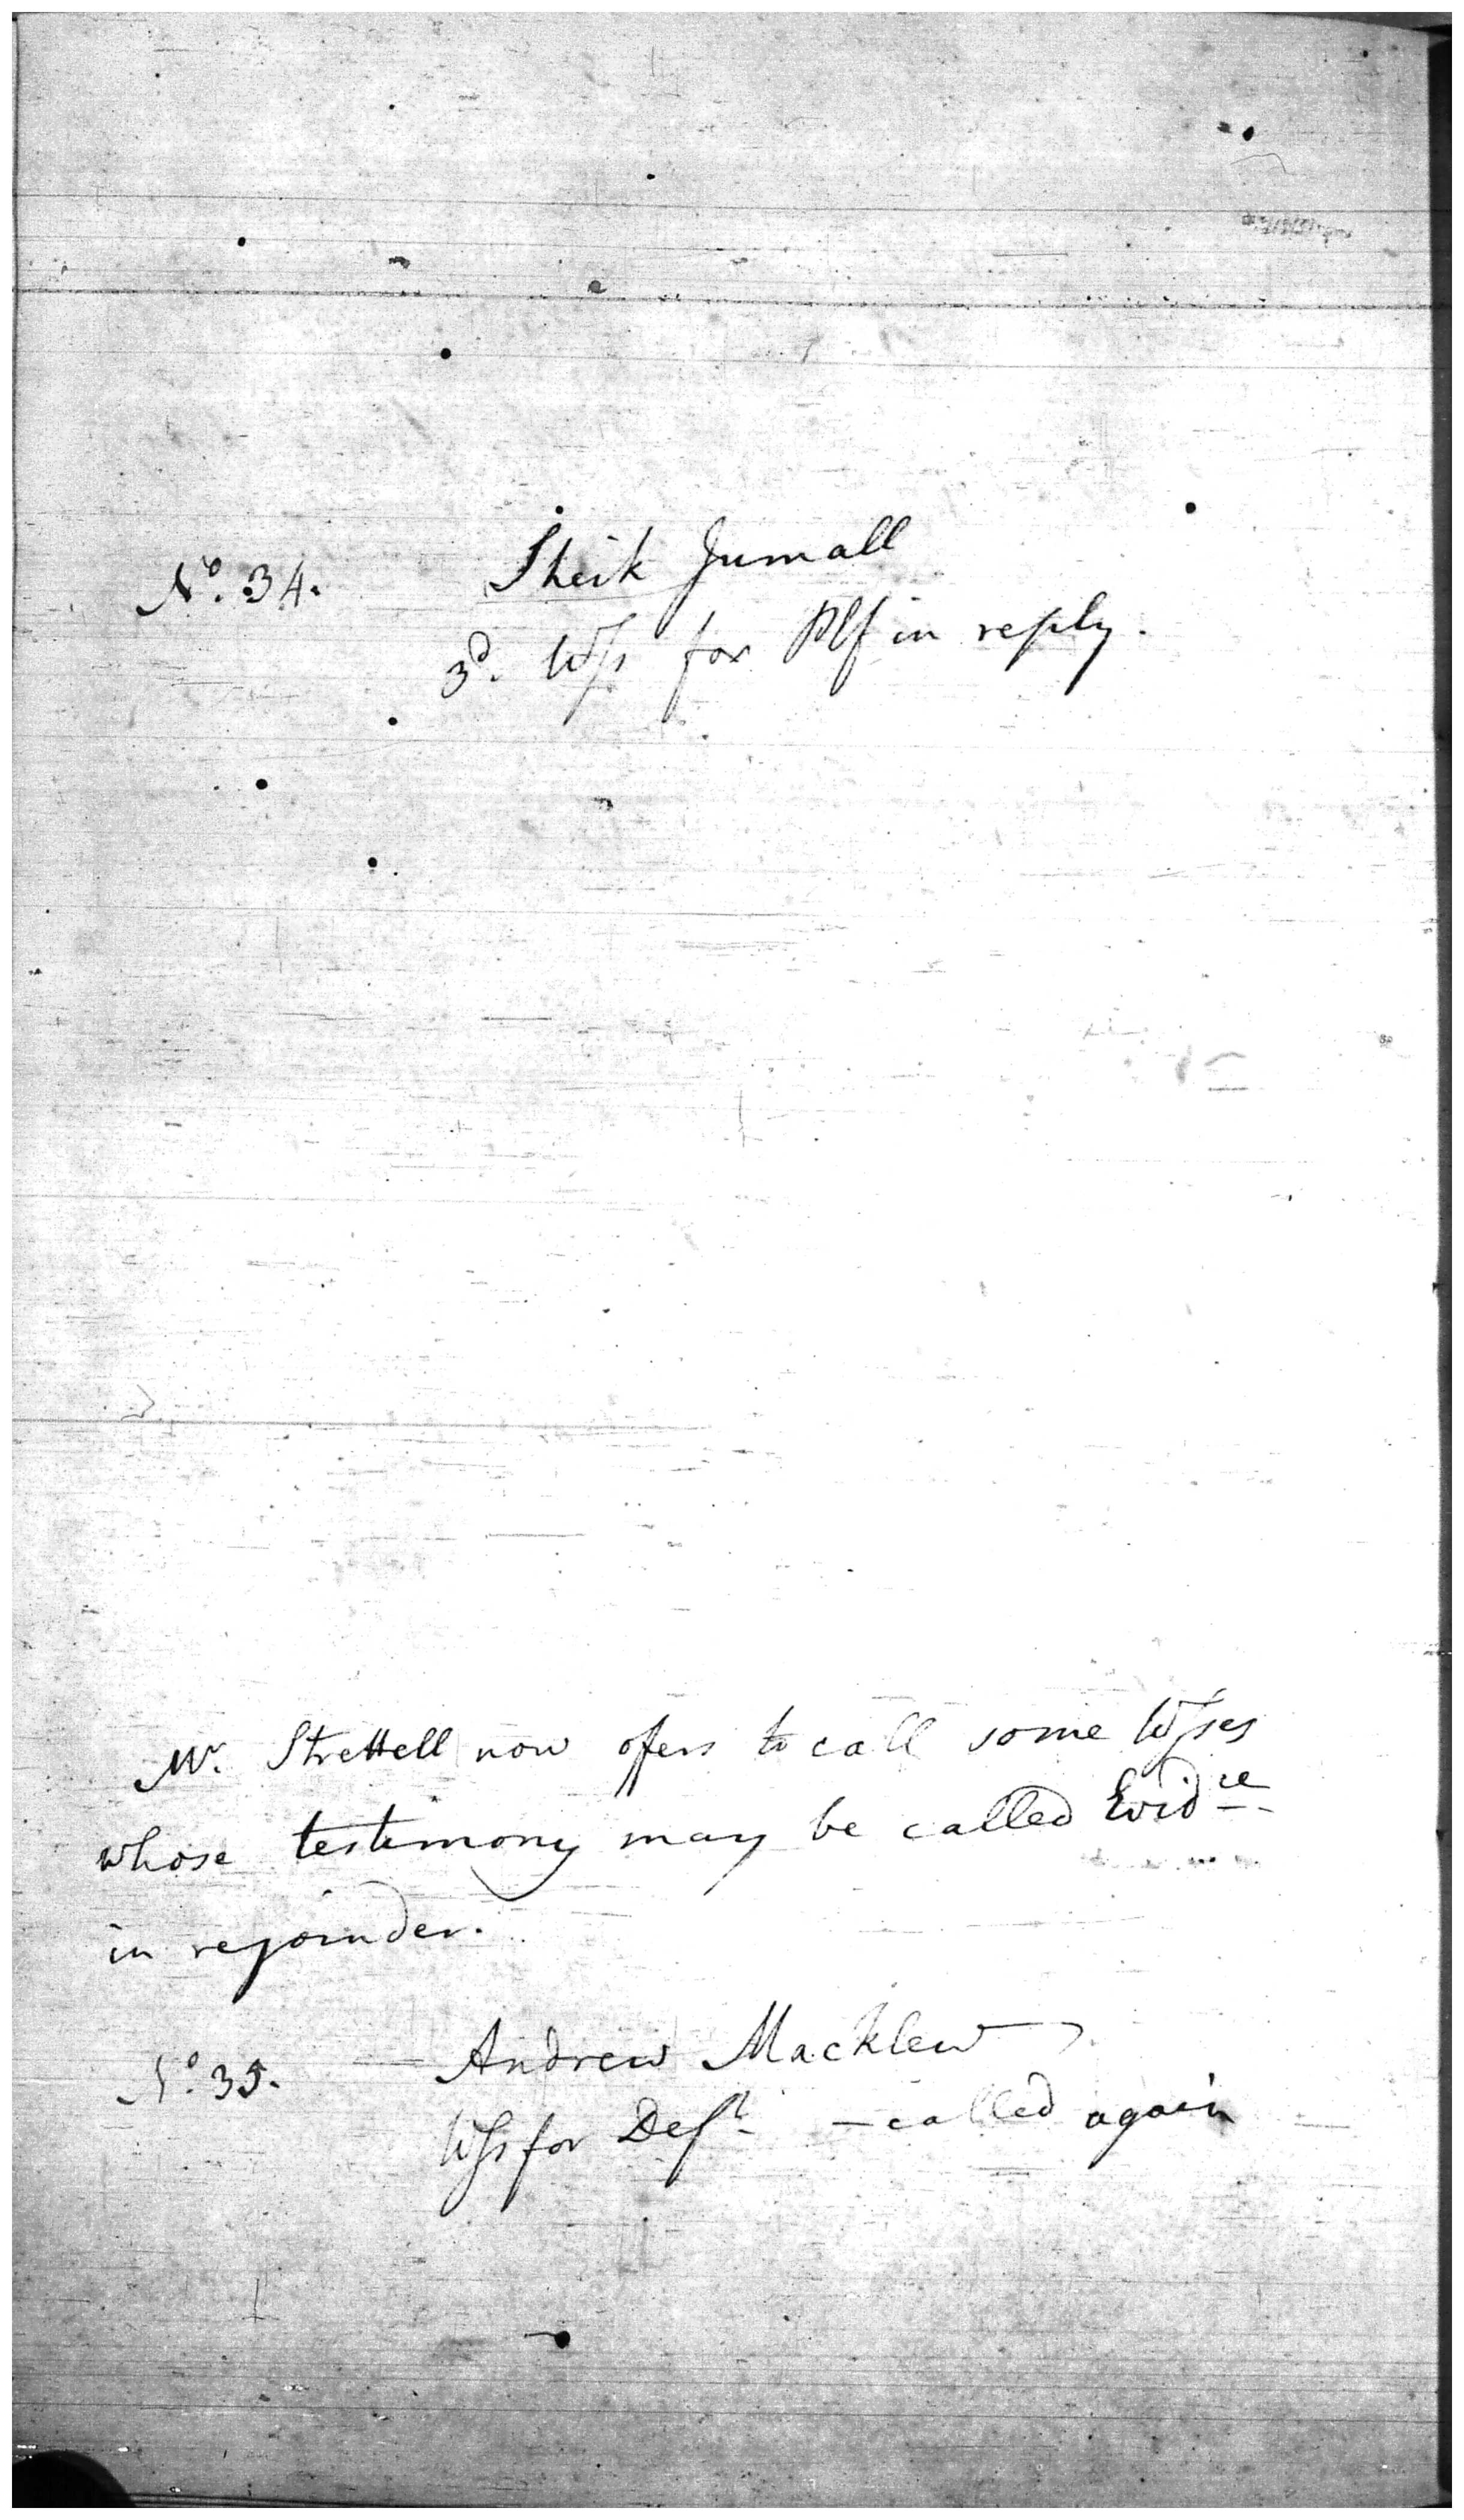 No. 34. Sheik Jumall
3d. Wss for Plf in reply.
Mr. Strettell now offers to call some Wsses
whose testimony may be called Evidce
in rejoinder.
No. 35. Andrew Macklew
Wss for Deft - called again